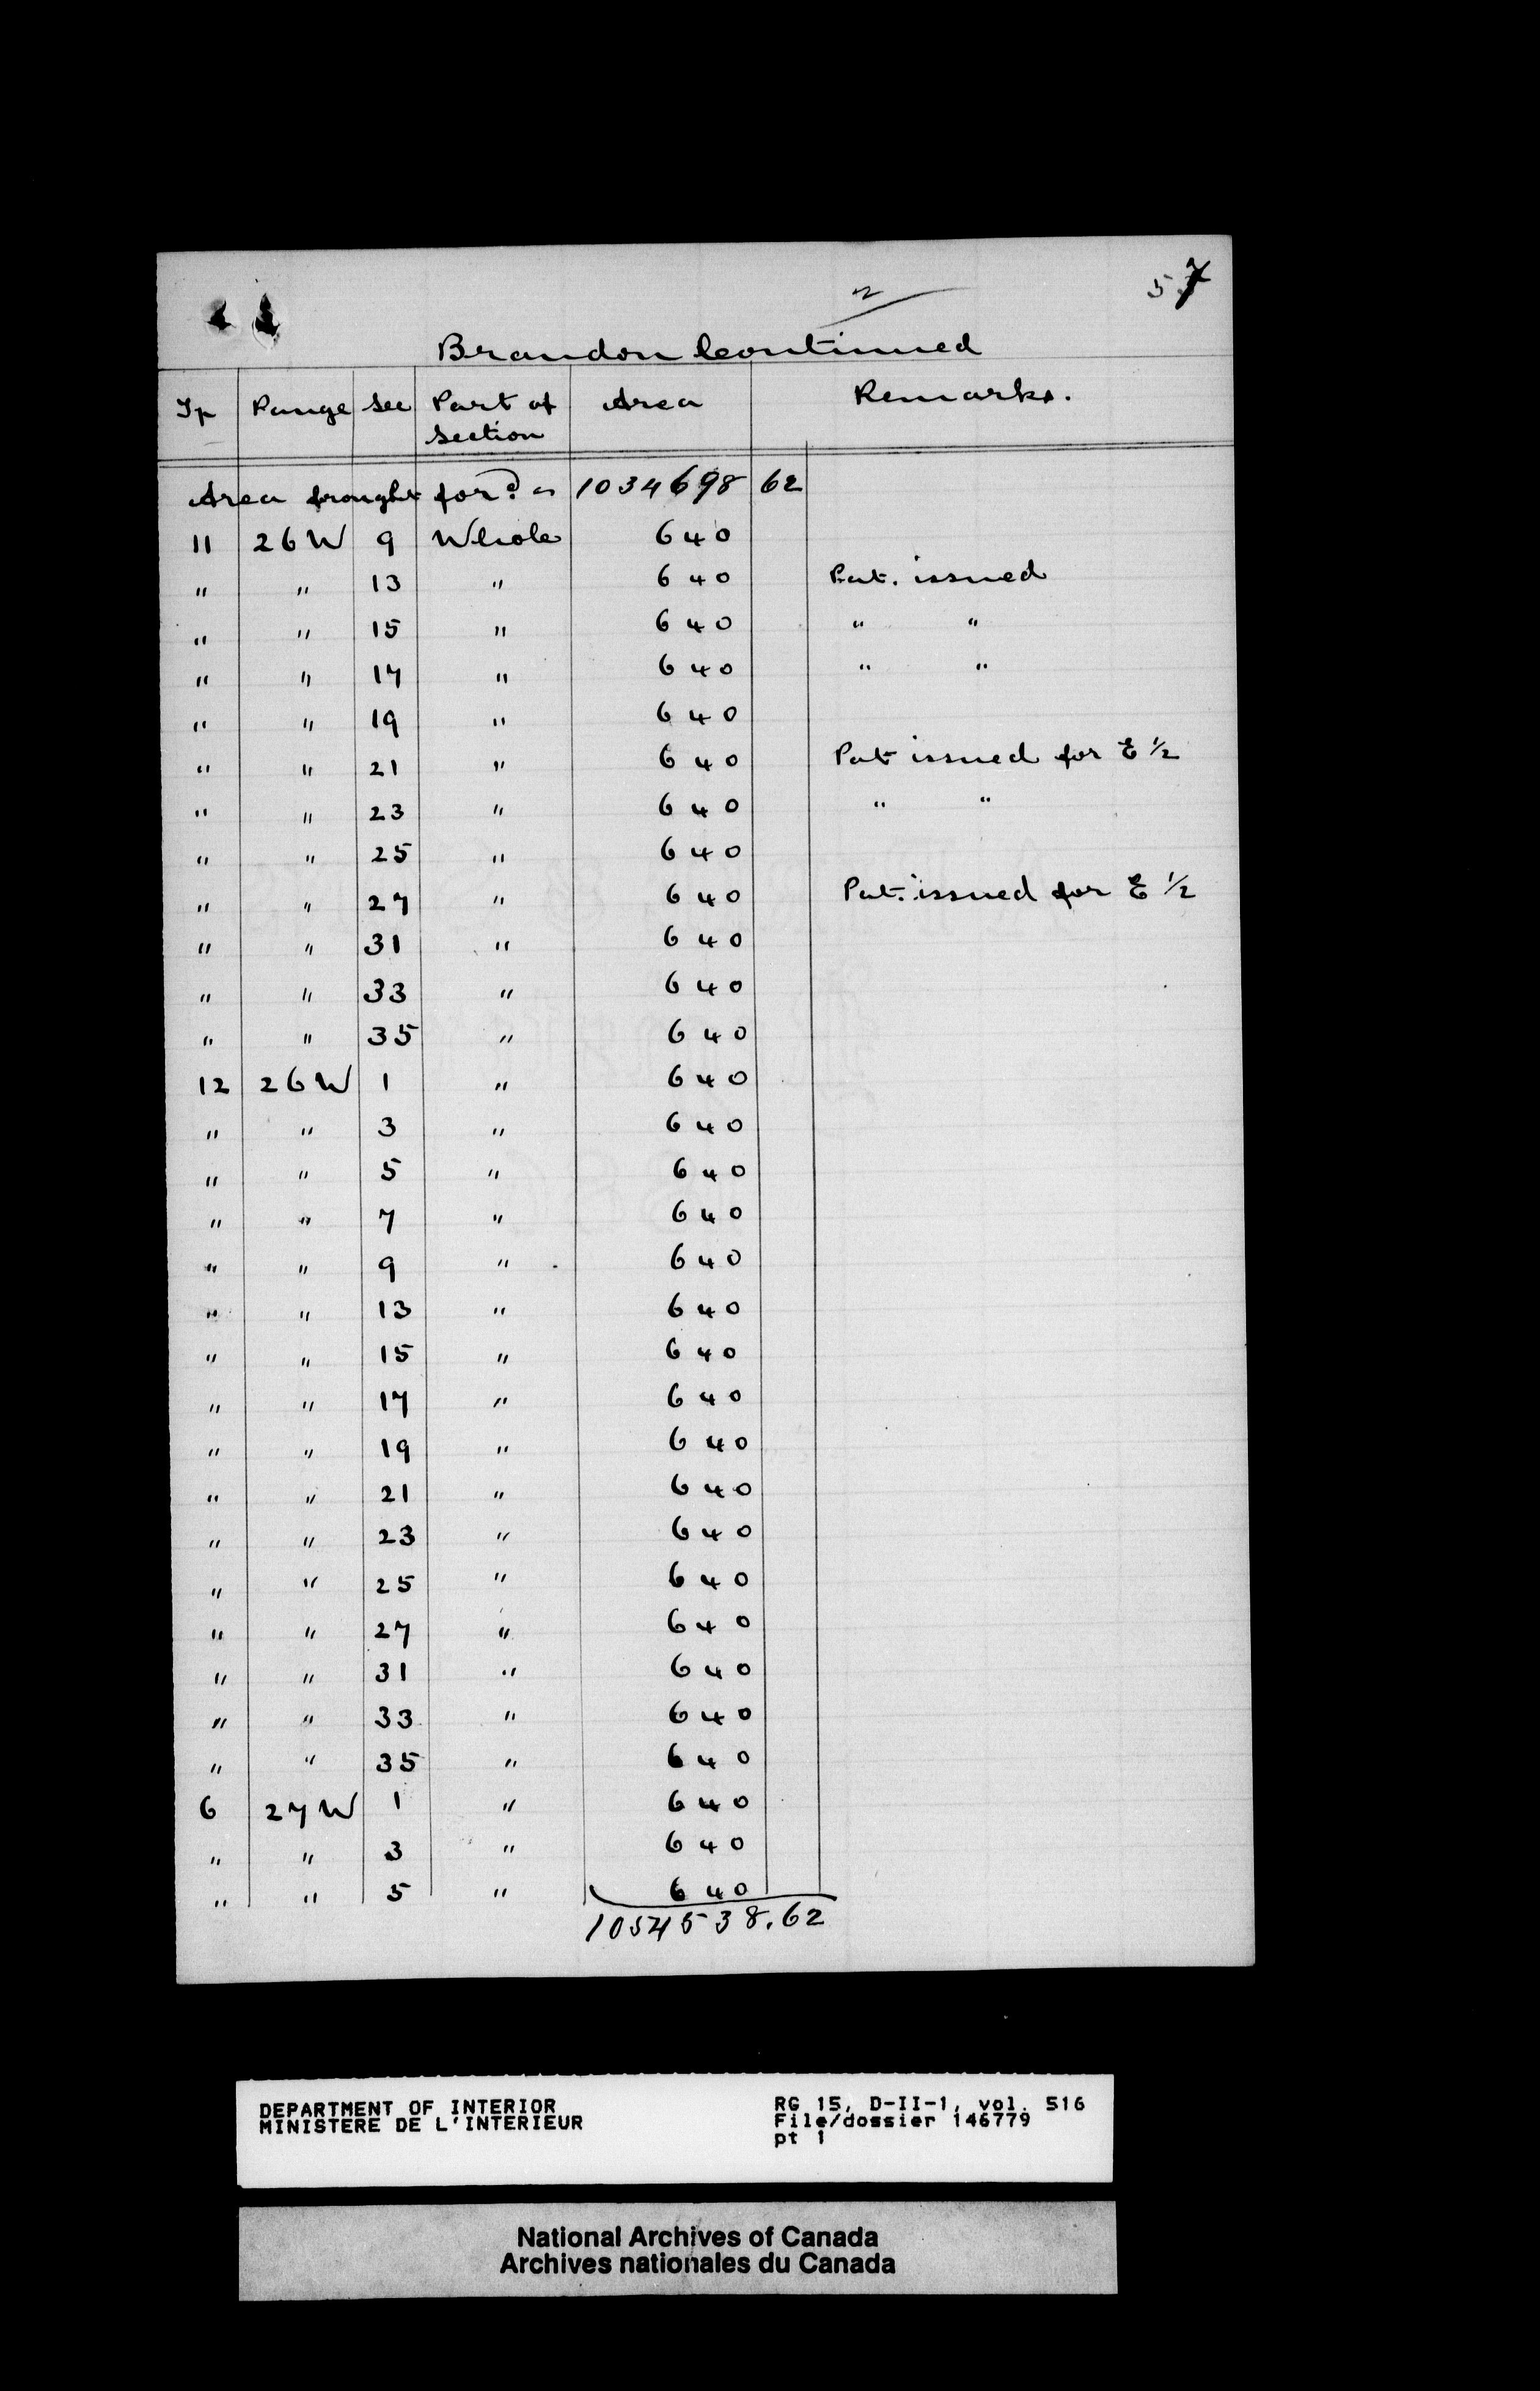 2
57
Brandon Continued
Tp Range Sec Part of section Area Remarks.
Area brought for.d 1034698 62
11 26 W 9 Whole 640
" " 13 " 640 Pat. issued
" " 15 " 640 " "
" " 17 " 640 " "
" " 19 " 640
" " 21 " 640 Pat issued for E ½
" " 23 " 640 " "
" " 25 " 640
" " 27 " 640 Pat. issued for E ½
" " 31 " 640
" " 33 " 640
" " 35 " 640
12 26 W 1 " 640
" " 3 " 640
" " 5 " 640
" " 7 " 640
" " 9 " 640
" " 13 " 640
" " 15 " 640
" " 17 " 640
" " 19 " 640
" " 21 " 640
" " 23 " 640
" " 25 " 640
" " 27 " 640
" " 31 " 640
" " 33 " 640
" " 35 " 640
6 27 W 1 " 640
" " 3 " 640
" " 5 " 640
1054538.62
DEPARTMENT OF INTERIOR
MINISTERE DE L'INTERIEUR
RG 15, D-II-1, vol. 516
File/dossier 146779
pt 1
National Archives of Canada
Archives nationales du Canada